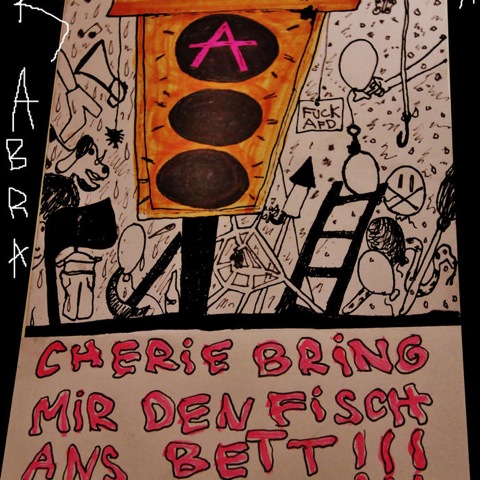 A
B
R
A
A
FUCK
AFD
CHERiE BRiNG
MiR DEN FiSCH
ANS BETT!!!